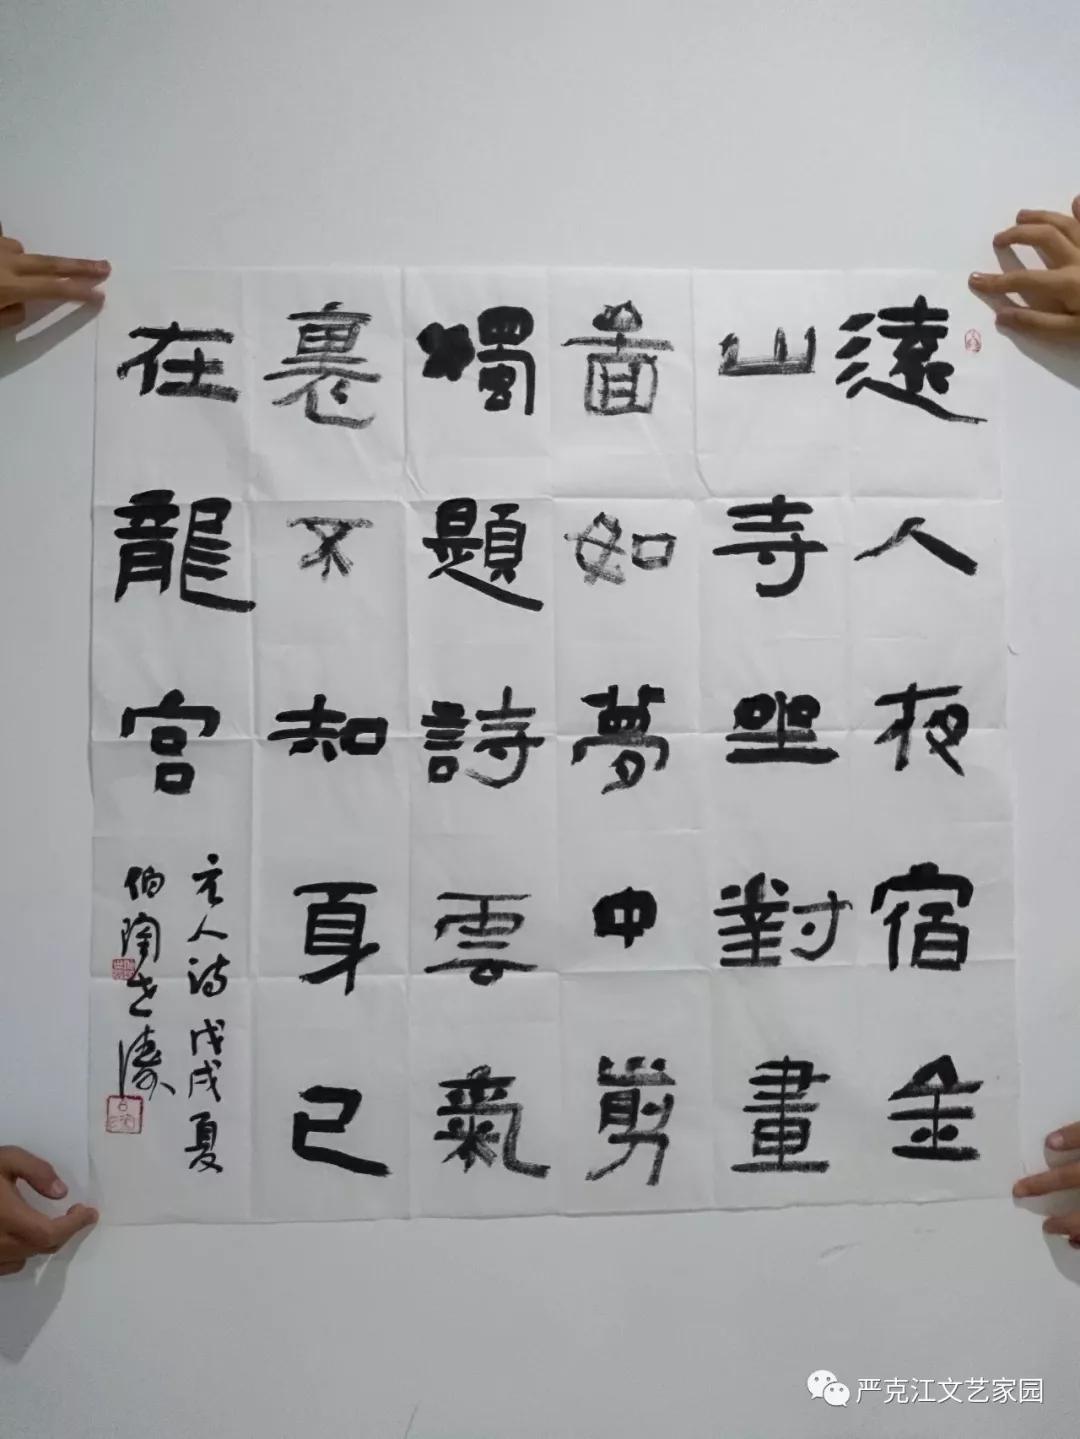 遠人夜宿金
山寺坐對畫
啚如夢中剪
燭題詩雲氣
裏不知身已
在龍宮
元人诗戊戌夏
伯陶
严克江文艺家园